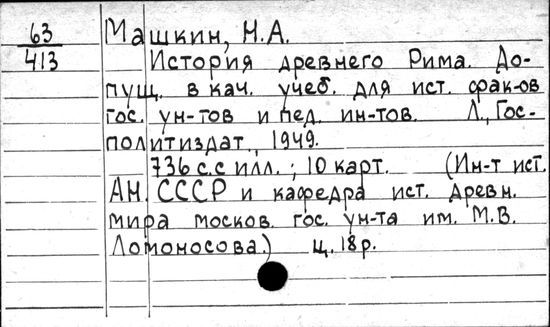 63 Машкин, Н.А.
413 История древнего Рима. До-
пущ. в кач. учеб. для ист. фак-ов
гос. ун-тов и пед. ин-тов. Л., Гос-
политиздат, 1949.
736 с. с илл.; 10 карт. (Ин-т ист.
АН. СССР и кафедра ист. древн.
мира москов. гос. ун-та им. М.В.
Ломоносова.) Ц. 18 р.